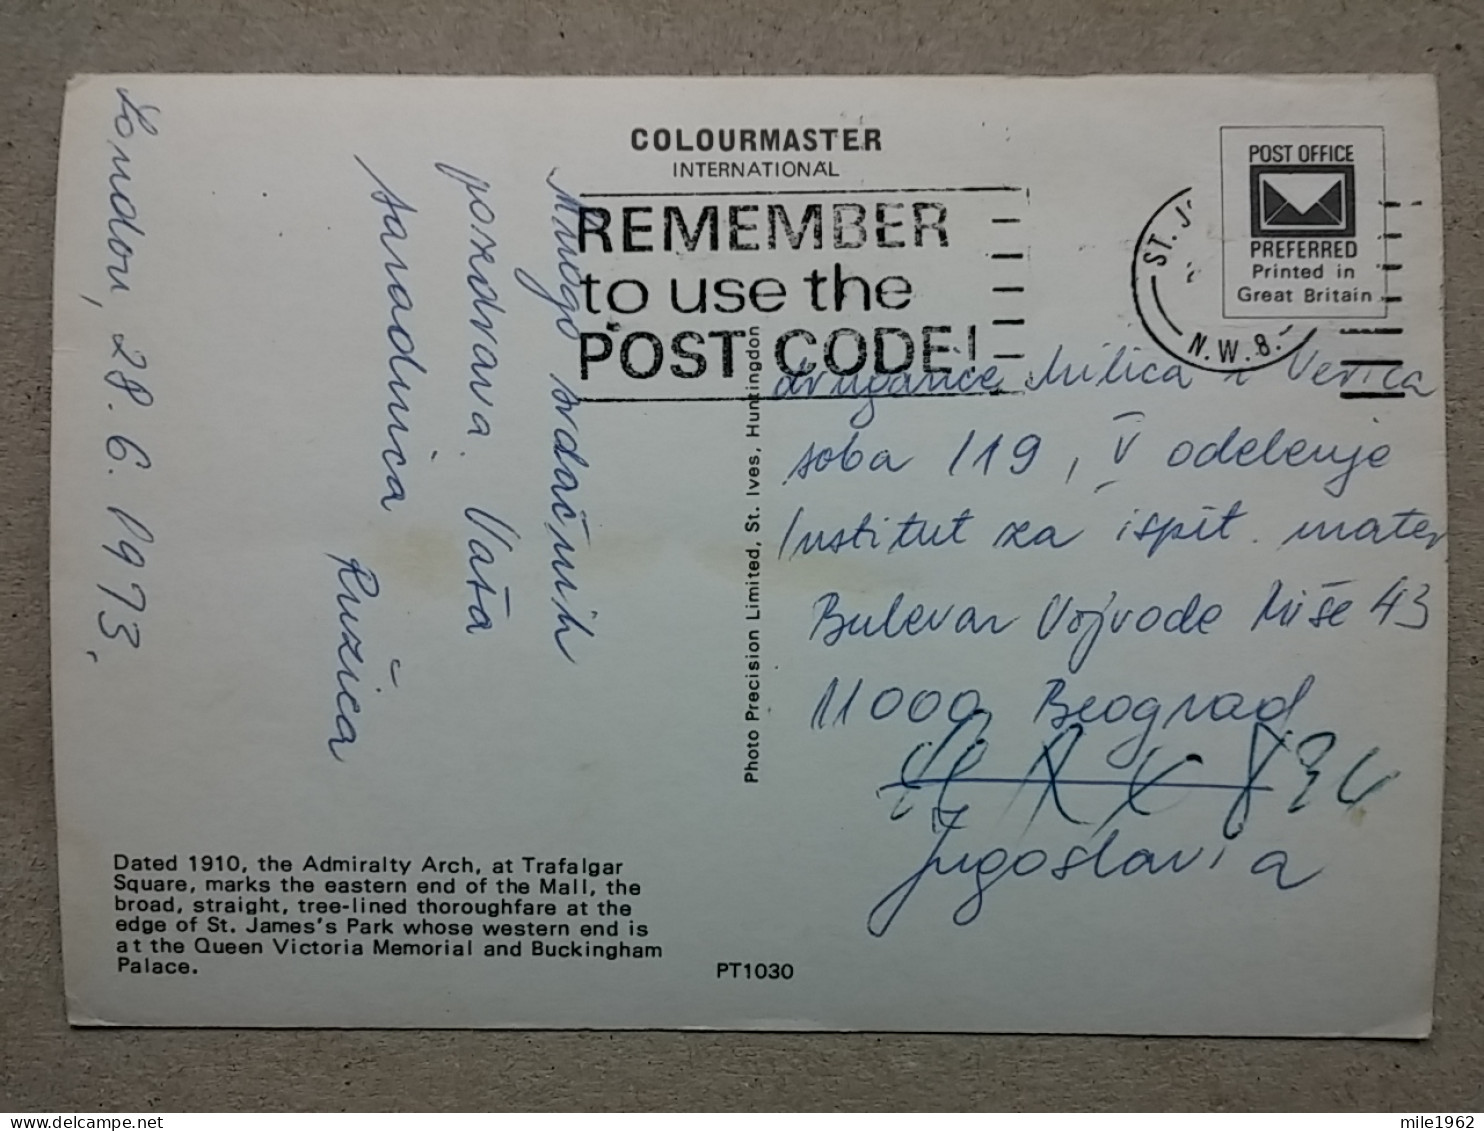 COLOURMASTER
INTERNATIONAL
REMEMBER
to use the
POST CODE!
ST. J
N.W.8.
POST OFFICE
PREFERRED
Printed in
Great Britain
London, 28. 6. 1973.
Mnogo srdačnih
pozdrava. Vaša
saradnica
Ružica
Photo Precision Limited, St. Ives, Huntingdon
drugarice Milica i Verica
soba 119, V odelenje
Institut za ispit. mater
Bulevar Vojvode Miše 43
11000 Beograd
Jugoslavia
Dated 1910, the Admiralty Arch, at Trafalgar
Square, marks the eastern end of the Mall, the
broad, straight, tree-lined thoroughfare at the
edge of St. James's Park whose western end is
at the Queen Victoria Memorial and Buckingham
Palace.
PT1030
mile1962